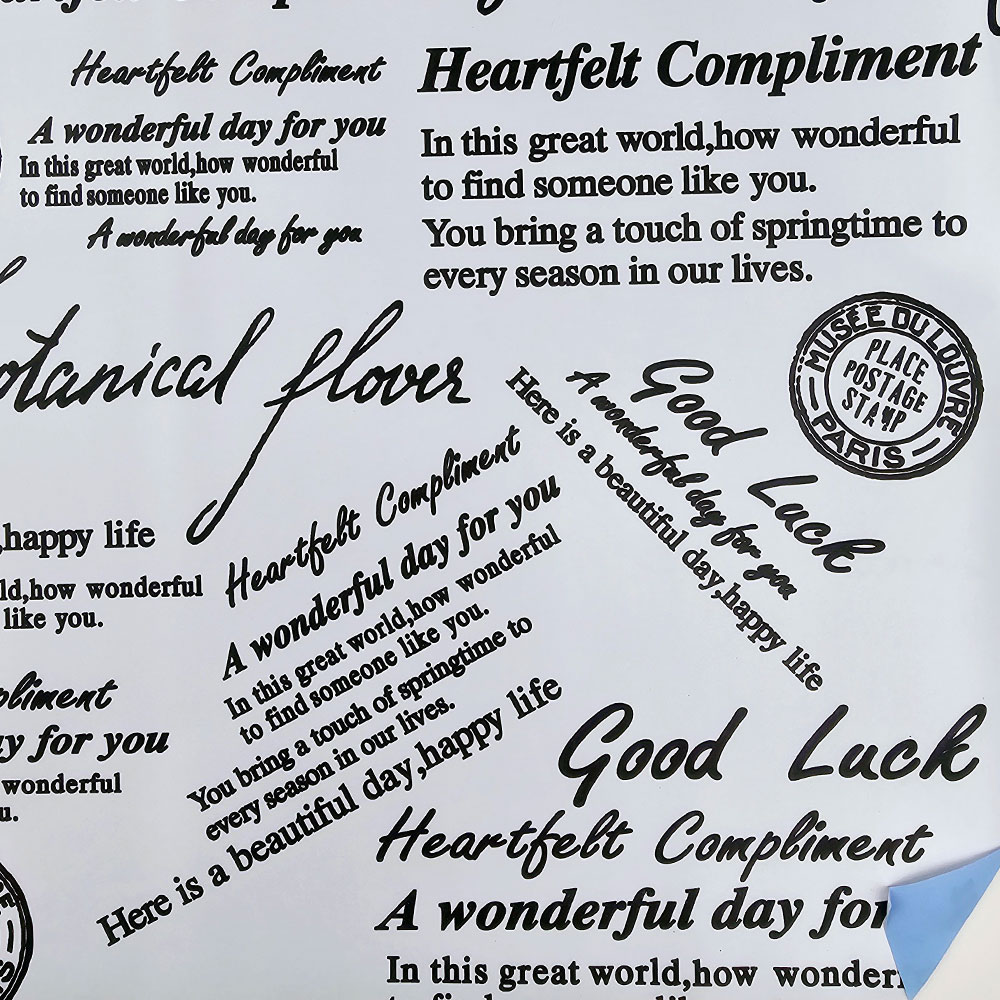 Heartfelt Compliment
A wonderful day for you
In this great world,how wonderful
to find someone like you.
A wonderful day for you
Heartfelt Compliment
In this great world,how wonderful
to find someone like you.
You bring a touch of springtime to
every season in our lives.
otanical flover
MUSÉE DU LOUVRE
PLACE
POSTAGE
STAMP
PARIS
Good Luck
A wonderful day for you
Here is a beautiful day,happy life
,happy life
ld,how wonderful
like you.
pliment
ay for you
wonderful
u.
Heartfelt Compliment
A wonderful day for you
In this great world,how wonderful
to find someone like you.
You bring a touch of springtime to
every season in our lives.
Here is a beautiful day,happy life
Good Luck
Heartfelt Compliment
A wonderful day for
In this great world,how wonder